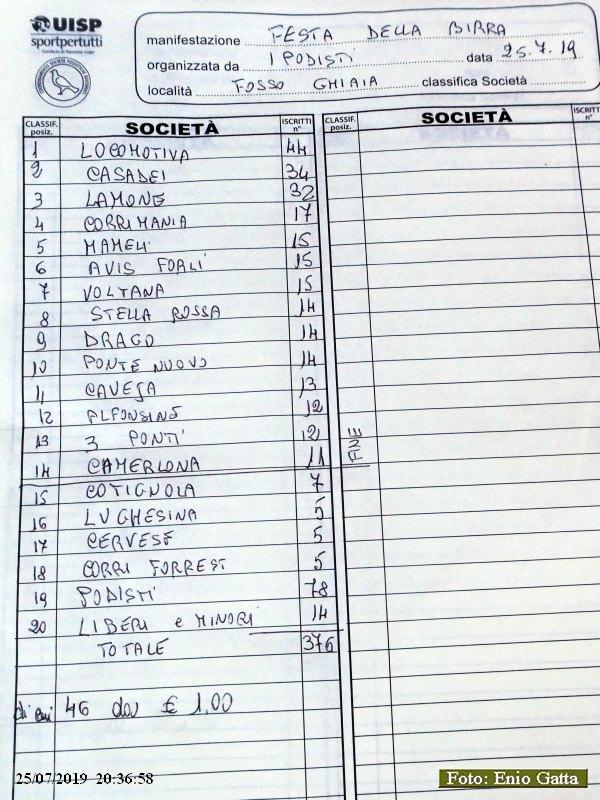 UISP
sportpertutti
manifestazione FESTA DELLA BIRRA
organizzata da I PODISTI data 25.7.19
località FOSSO GHIAIA classifica Società
CLASSIF. posiz. SOCIETÀ ISCRITTI n° CLASSIF. posiz. SOCIETÀ ISCRITTI n°
1 LOCOMOTIVA 44
2 CASADEI 34
3 LAMONE 32
4 CORRIMANIA 17
5 MAMELI 15
6 AVIS FORLI' 15
7 VOLTANA 15
8 STELLA ROSSA 14
9 DRAGO 14
10 PONTE NUOVO 14
11 CAVEJA 13
12 ALFONSINE 12
13 3 PONTI 12
14 CAMERLONA 11
FINE
15 COTIGNOLA 7
16 LUGHESINA 5
17 CERVESE 5
18 CORRI FORREST 5
19 PODISTI 78
20 LIBERI e MINORI 14
TOTALE 376
di cui 46 da € 1,00
25/07/2019 20:36:58
Foto: Enio Gatta